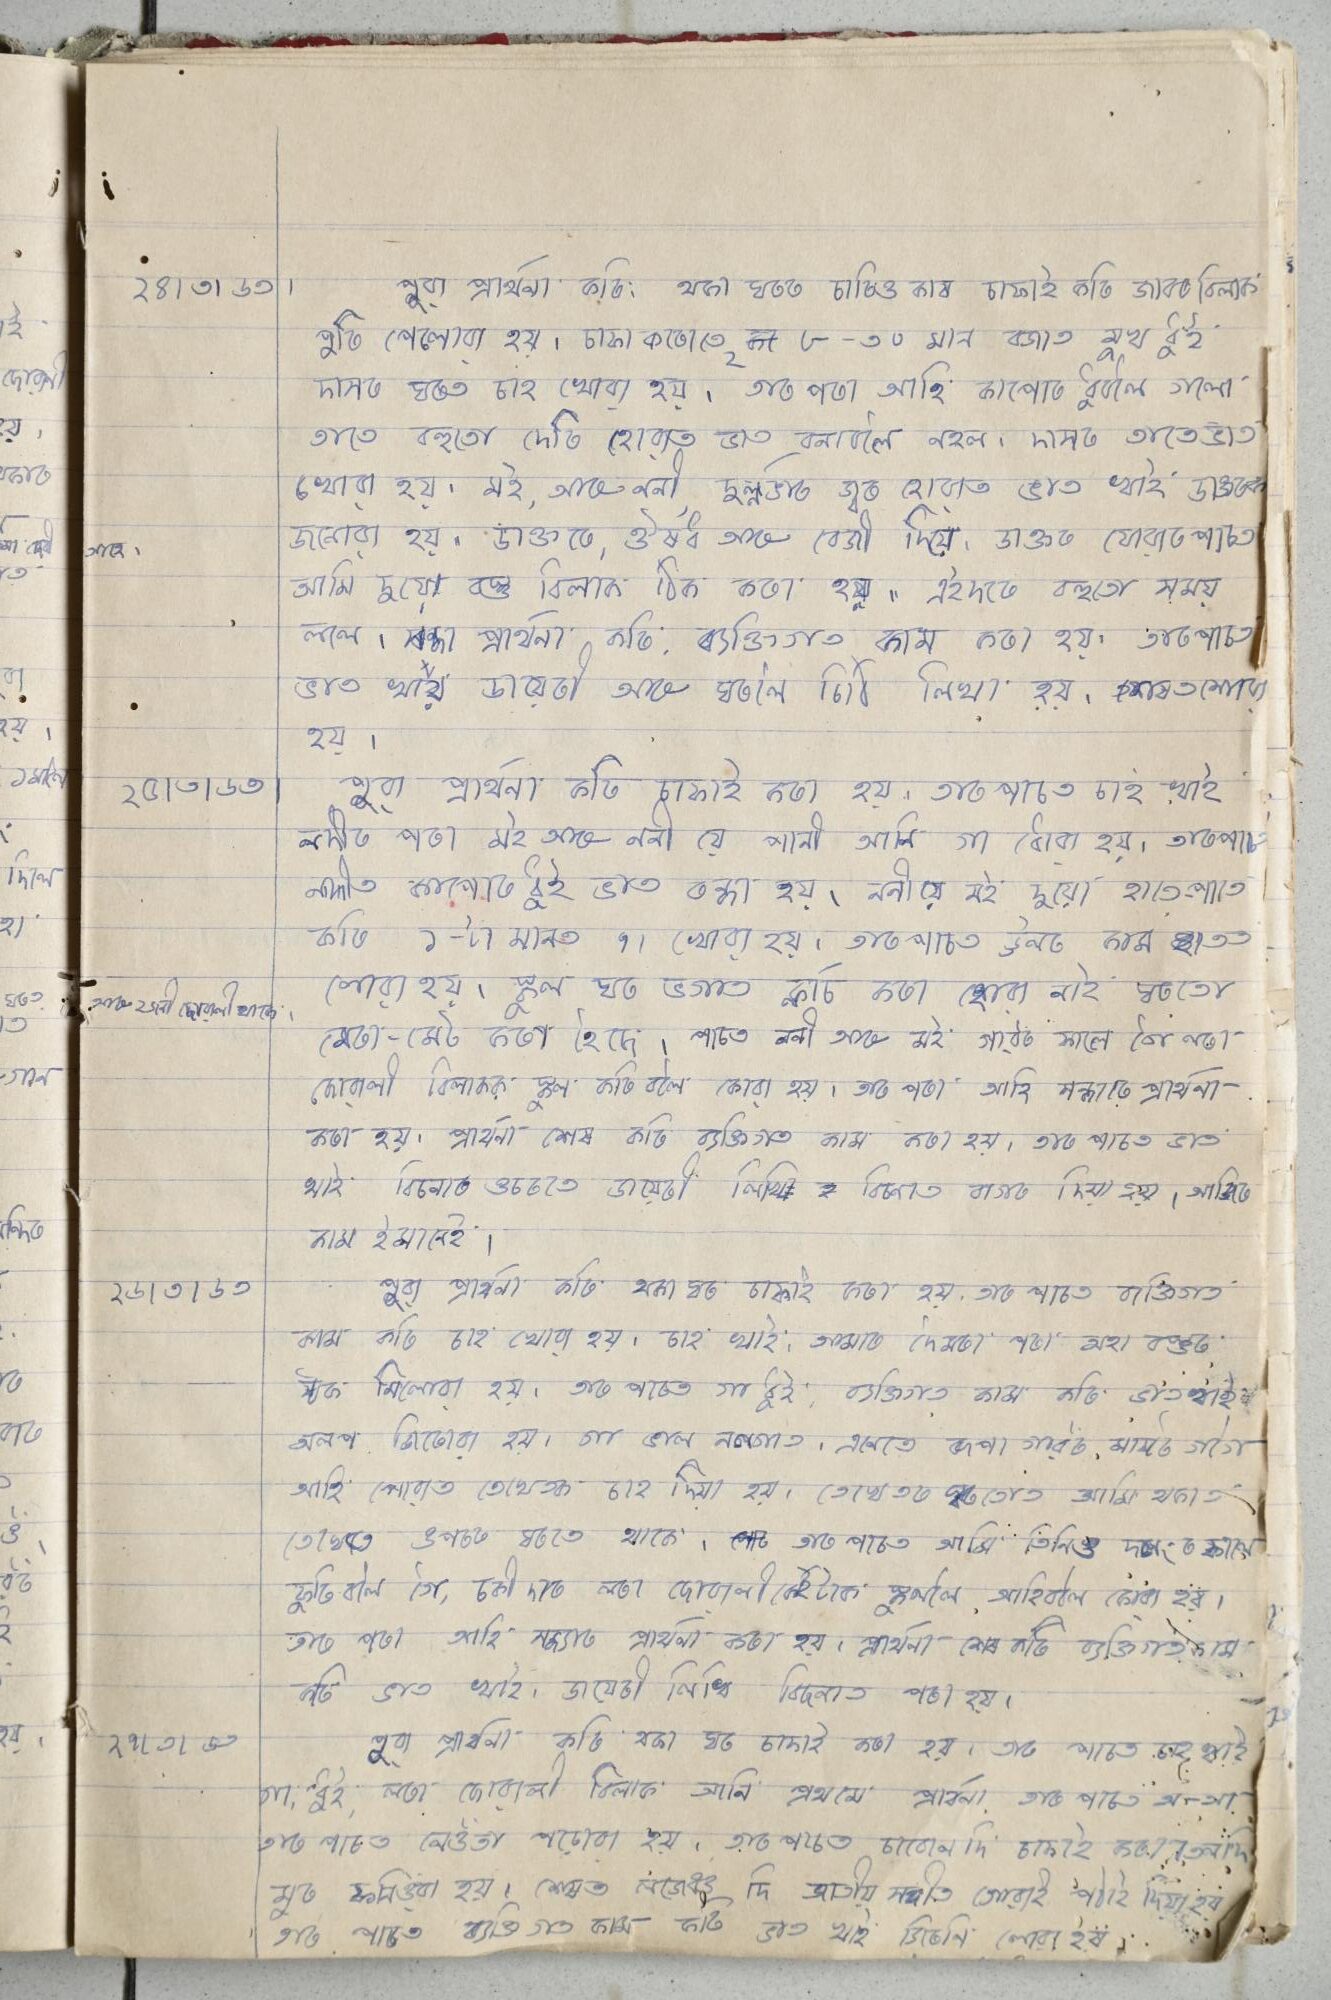 ২৪।৩।৬৩। পুৱা প্ৰাৰ্থনা কৰি থকা ঘৰৰ চাৰিও কাষ চাফাই কৰি জাবৰবিলাক
পুতি পেলোৱা হয়। চাফা কৰোতে ৮-৩০ মান বজাত মুখ ধুই
দাসৰ ঘৰত চাহ খোৱা হয়। তাৰ পৰা আহি কাপোৰ ধুবলৈ গলো
তাতে বহুতো দেৰি হোৱাত ভাত বনাবলৈ নহল। দাসৰ তাতে ভাত
খোৱা হয়। মই, আৰু ননী, জ্বৰ হোৱাত ভাত খাই ডাক্তৰক
জনোৱা হয়। ডাক্তৰে, ঔষধ আৰু বেজী দিয়ে। ডাক্তৰ যোৱাৰ পাচত
আমি দুয়ো বস্তু বিলাক ঠিক কৰা হয়। এইদৰে বহুতো সময়
ললে। সন্ধা প্ৰাৰ্থনা কৰি, ব্যক্তিগত কাম কৰা হয়। তাৰপাচত
ভাত খাই ডায়েৰী আৰু ঘৰলৈ চিঠি লিখা হয়। শেষত শোৱা
হয়।
২৫।৩।৬৩। পুৱা প্ৰাৰ্থনা কৰি চাফাই কৰা হয়। তাৰ পাচত চাহ খাই
নদীৰ পৰা মই আৰু ননী য়ে পানী আনি গা ধোৱা হয়। তাৰপাচত
নদীত কাপোৰ ধুই ভাত ৰন্ধা হয়। ননীয়ে মই দুয়ো হাতে-পাতে
কৰি ১-টা মানত খোৱা হয়। তাৰ পাচত উলৰ কাম হাতত
লোৱা হয়। স্কুল ঘৰ ভগাত ক্লাচ কৰা হোৱা নাই ঘৰতো
মেৰা-মেৰি কৰা হৈছে। পাচত ননী আৰু মই গাৱঁৰ ফালে গৈ লৰা
আৰু ২জনী ছোৱালী থাকে।
ছোৱালী বিলাকক স্কুল কৰিবলৈ কোৱা হয়। তাৰ পৰা আহি সন্ধাতে প্ৰাৰ্থনা
কৰা হয়। প্ৰাৰ্থনা শেষ কৰি ব্যক্তিগত কাম কৰা হয়। তাৰ পাচত ভাত
খাই বিচনাৰ ওচৰতে ডায়েৰী লিখি বিচনাত বাগৰ দিয়া হয়। আজিৰ
কাম ইমানেই।
২৬।৩।৬৩ পুৱা প্ৰাৰ্থনা কৰি থকা ঘৰ চাফাই কৰা হয়। তাৰ পাচত ব্যক্তিগত
কাম কৰি চাহ খোৱা হয়। চাহ খাই, আমাৰ পৰা অহা বস্তুৰ
ষ্টক মিলোৱা হয়। তাৰ পাচত গা ধুই, ব্যক্তিগত কাম কৰি ভাত খাই
অলপ জিৰোৱা হয়। গা ভাল নলগাত। এনেতে গাৱঁৰ মাষ্টৰ গগৈ
আহি পোৱাত তেখেতক চাহ দিয়া হয়। তেখেতৰ আমি থকাত
তেখেত ওপৰৰ ঘৰতে থাকে। তাৰ পাচত আমি তিনিও ফালে
ফুৰিবলৈ গৈ, লৰা ছোৱালী কেইটাক স্কুললৈ আহিবলৈ কোৱা হয়।
তাৰ পৰা আহি সন্ধ্যাৰ প্ৰাৰ্থনা কৰা হয়। প্ৰাৰ্থনা শেষ কৰি ব্যক্তিগত কাম
কৰি ভাত খাই। ডায়েৰী লিখি বিচনাত পৰা হয়।
২৭।৩।৬৩ পুৱা প্ৰাৰ্থনা কৰি থকা ঘৰ চাফাই কৰা হয়। তাৰ পাচত চাহ খাই
গা, ধুই, লৰা ছোৱালী বিলাক আনি প্ৰথমে প্ৰাৰ্থনা তাৰ পাচত অ-আ
তাৰ পাচত নেওতা পঢ়োৱা হয়। তাৰ পাচত চাবোন দি চাফাই কৰা তেল দি
মূৰ হয়। শেষত দি জাতীয় সঙ্গীত গোৱাই পঠাই দিয়া হয়
তাৰ পাচত ব্যক্তিগত কাম কৰি ভাত খাই জিৰণি লোৱা হয়।